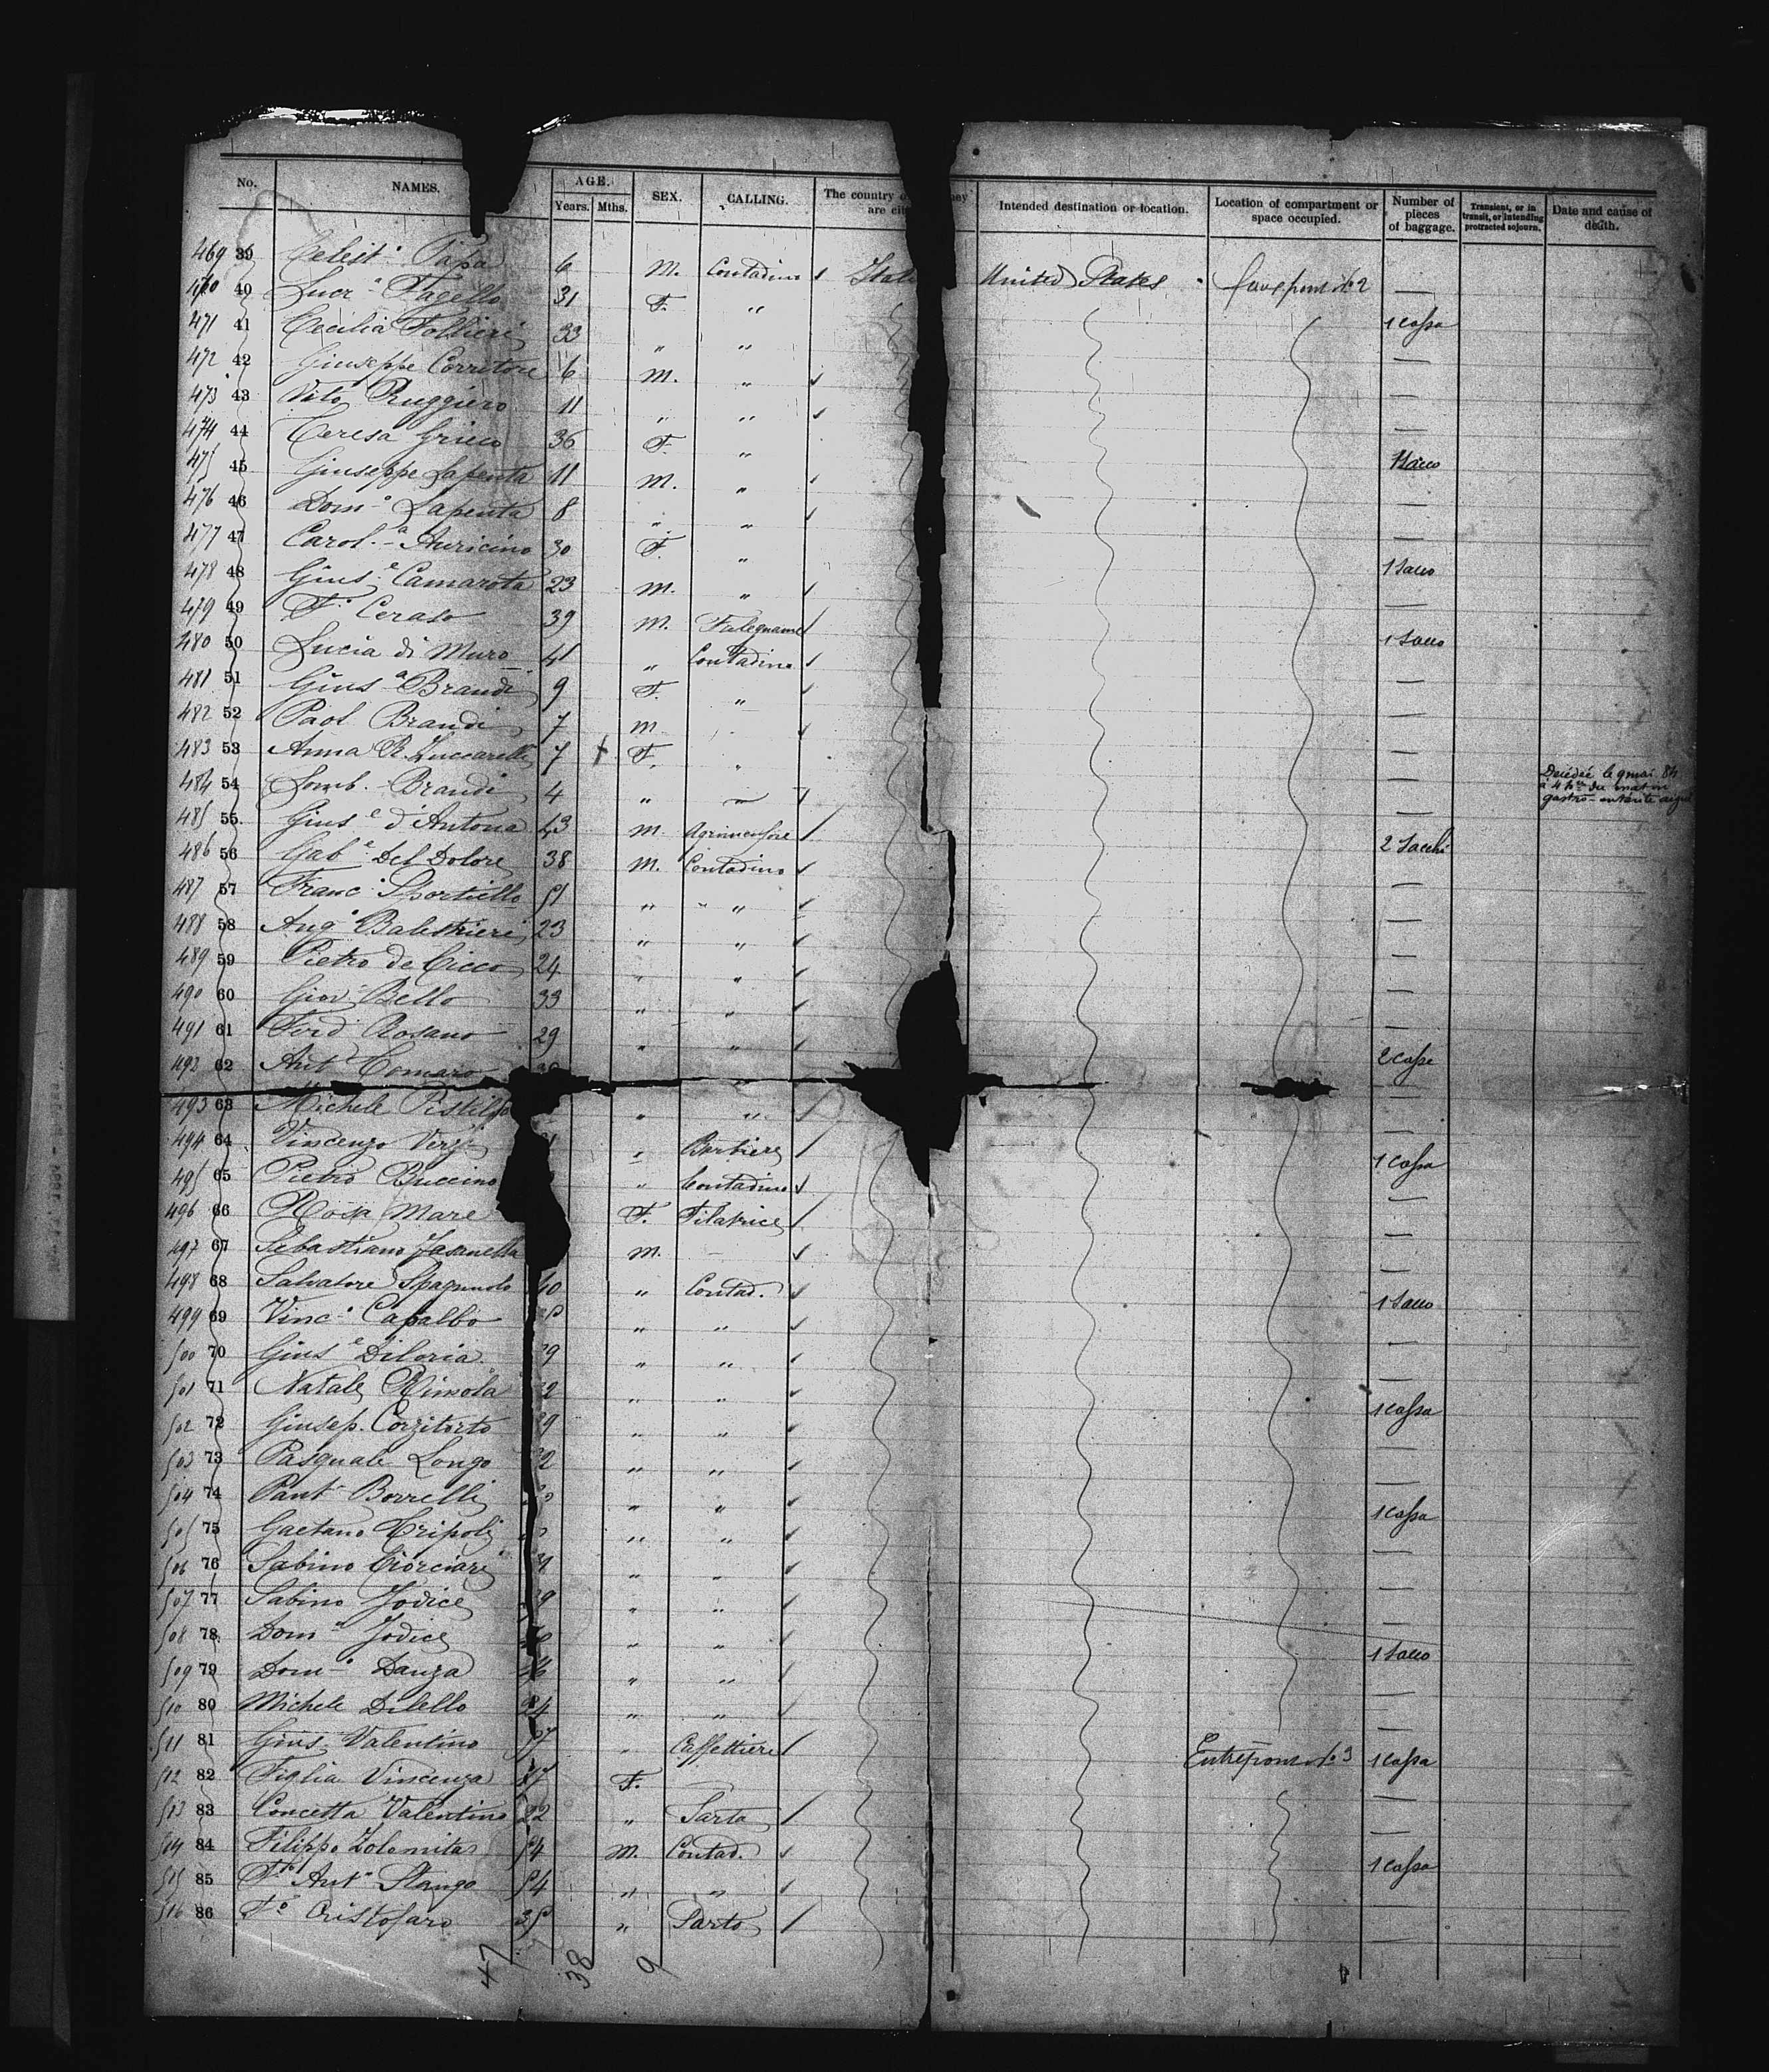 No. NAMES. AGE. Years. Mths. SEX. CALLING. The country o ney are cit Intended destination or location. Location of compartment or space occupied. Number of pieces of baggage. Transient, or in transit, or intending protracted sojourn. Date and cause of death.
469 39 Celest.o Papa 6 M. Contadino Ital United States
470 40 Lucr.a Fagello 31 F. „ —
471 41 Cecilia Follieri 33 „ „ 1 cassa
472 42 Giuseppe Corritore 6 M. „ —
473 43 Vito Ruggiero 11 „ „ —
474 44 Teresa Grieco 36 F. „ —
475 45 Giuseppe Lapenta 11 M. „ 1 sacco
476 46 Dom.o Lapenta 8 „ „ —
477 47 Carol.a Auricino 30 F. „ —
478 48 Gius.e Camarota 23 M. „ 1 sacco
479 49 F.o Ceraso 39 M. Falegname —
480 50 Lucia di Muro 41 „ Contadino 1 sacco
481 51 Gius.a Brandi 9 F. „ —
482 52 Paol Brandi 7 M „ —
483 53 Anna R. Zuccarelli 7 + F. „ —
484 54 Lomb. Brandi 4 „ „ — Decédée le 9 mai 84 à 4 h du matin gastro-enterite aigue
485 55. Gius.e d'Antona 43 M. Agrimensore —
486 56 Gab.e Del Dolore 38 M. Contadino 2 sacchi
487 57 Franc.o Sportiello 51 „ „ „ —
488 58 Ang.o Balestrieri 23 „ „ —
489 59 Pietro de Cicco 24 „ „ —
490 60 Giov. Bello 33 „ „ —
491 61 Ferd. Rosano 29 „ „ —
492 62 Ant. Comaro „ 2 casse
493 63 Michele Pistil „ „ —
494 64 Vincenzo „ Barbiere —
495 65 Pietro Buccino „ Contadino 1 cassa
496 66 Rosa Mare F. Filatrice —
497 67 Sebastiano Jasanella M. — —
498 68 Salvatore Spagnuolo 40 „ Contad. —
499 69 Vinc.o Capalbo „ „ 1 sacco
500 70 Gius.e Diloria 9 „ „ —
501 71 Natale Rimola 2 „ „ —
502 72 Giusep. Corzitorto 9 „ „ 1 cassa
503 73 Pasquale Longo 2 „ „ —
504 74 Pant. Borrelli „ „ —
505 75 Gaetano Tripoli „ „ 1 cassa
506 76 Sabino Ciorciari „ „ —
507 77 Sabino Jodice 9 „ „ —
508 78 Dom.o Jodice „ „ —
509 79 Dom.o Danza „ „ 1 sacco
510 80 Michele Dilello 24 „ „ —
511 81 Gius. Valentino „ Caffettiere —
512 82 Figlia Vincenza 17 F. Entrepont No 3 1 cassa
513 83 Concetta Valentino 22 „ Sarta —
514 84 Filippo Zolomita 54 M. Contad. —
515 85 F. Ant.o Stango 54 „ „ 1 cassa
516 86 F.o Cristofaro 35 „ Sarto —
47 38 9